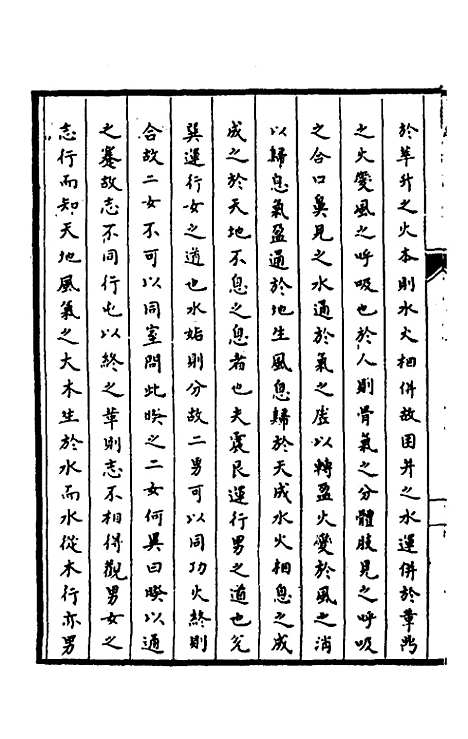 於萃升之火本則水火相併故困井之水運併於革鼎
之火變風之呼吸也於人則骨氣之分體肢見之呼吸
之合口鼻見之水通於氣之虛以轉盈火變於風之消
以歸息氣盈通於地生風息歸於天成水火相息之成
成之於天地不息之息者也夫震艮運行男之道也兌
巽運行女之道也水始則分故二男可以同功火終則
合故二女不可以同室問此睽之二女何異曰睽以通
之蹇故志不同行屯以終之革則志不相得觀男女之
志行而知天地風氣之大木生於水而水從木行亦男